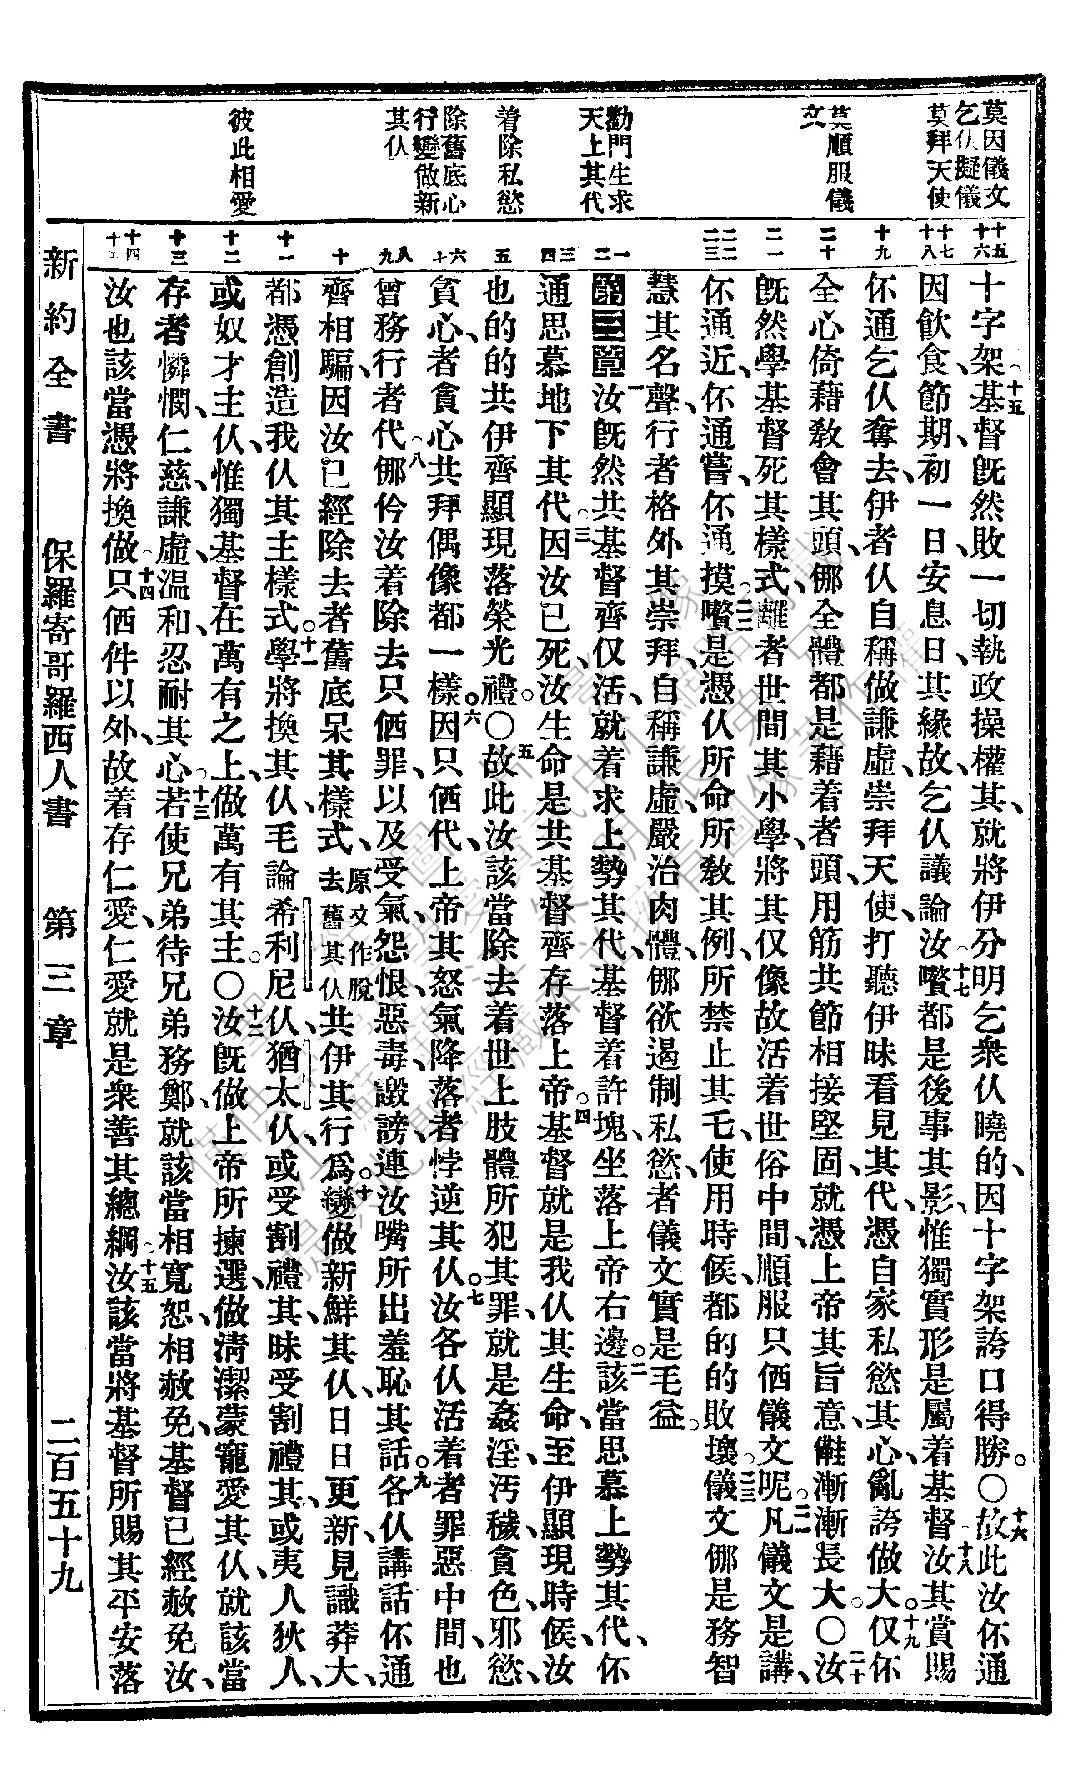 莫因儀文
乞仈擬儀
莫拜天使
莫順服儀
文
勸門生求
天上其代
着除私慾
除舊底心
行變做新
其仈
彼此相愛
十五
十六
十七
十八
十九
二十
二一
二二
二三
一
二
三
四
五
六
七
八
九
十
十一
十二
十三
十四
十五
十字架、十五基督旣然敗一切執政操權其、就將伊分明乞衆仈曉的、因十字架誇口得勝。〇十六故此汝伓通
因飲食、節期、初一日、安息日、其緣故、乞仈議論汝、十七嚽都是後事其影、惟獨實形是屬着基督、十八汝其賞賜
伓通乞仈奪去、伊者仈自稱做謙虛、崇拜天使、打聽伊昧看見其代、憑自家私慾其心、亂誇做大。十九仅伓
全心倚藉敎會其頭、㑚全體都是藉着者頭、用筋共節相接堅固、就憑上帝其旨意、漸漸長大。〇二十汝
旣然學基督死其樣式、離者世間其小學、將其仅像故活着世俗中間、順服只佰儀文呢。二一凡儀文是講、
伓通近、伓通嘗、伓通摸。二二嚽是憑仈所命所敎其例、所禁止其乇、使用時候都的的敗壞。二三儀文㑚是務智
慧其名聲、行者格外其崇拜、自稱謙虛、嚴治肉體、㑚欲遏制私慾、者儀文實是毛益。
第三章一汝旣然共基督齊仅活、就着求上勢其代、基督着許塊、坐落上帝右邊。二該當思慕上勢其代、伓
通思慕地下其代。三因汝已死、汝生命是共基督齊存落上帝。四基督就是我仈其生命、至伊顯現時候、汝
也的的共伊齊顯現落榮光禮。〇五故此汝該當除去着世上肢體所犯其罪、就是姦淫、汚穢、貪色、邪慾、
貪心、者貪心共拜偶像都一樣。六因只佰代、上帝其怒氣降落者悖逆其仈。七汝各仈活着者罪惡中間、也
曾務行者代、八㑚伶汝着除去只佰罪、以及受氣、怨恨、惡毒、譭謗、連汝嘴所出羞恥其話。九各仈講話伓通
齊相騙、因汝已經除去者舊底呆其樣式、原文作脫去舊其仈共伊其行爲。十變做新鮮其仈、日日更新、見識莽大、
都憑創造我仈其主樣式。十一學將換其仈、毛論希利尼仈、猶太仈、或受割禮其、昧受割禮其、或夷人、狄人、
或奴才、主仈、惟獨基督在萬有之上、做萬有其主。〇十二汝旣做上帝所揀選、做淸潔、蒙寵愛其仈、就該當
存者憐憫、仁慈、謙虛、溫和、忍耐其心。十三若使兄弟待兄弟務鄭、就該當相寬恕、相赦免、基督已經赦免汝、
汝也該當憑將換做。十四只佰件以外、故着存仁愛、仁愛就是衆善其總綱。十五汝該當將基督所賜其平安落
新約全書 保羅寄哥羅西人書 第三章 二百五十九